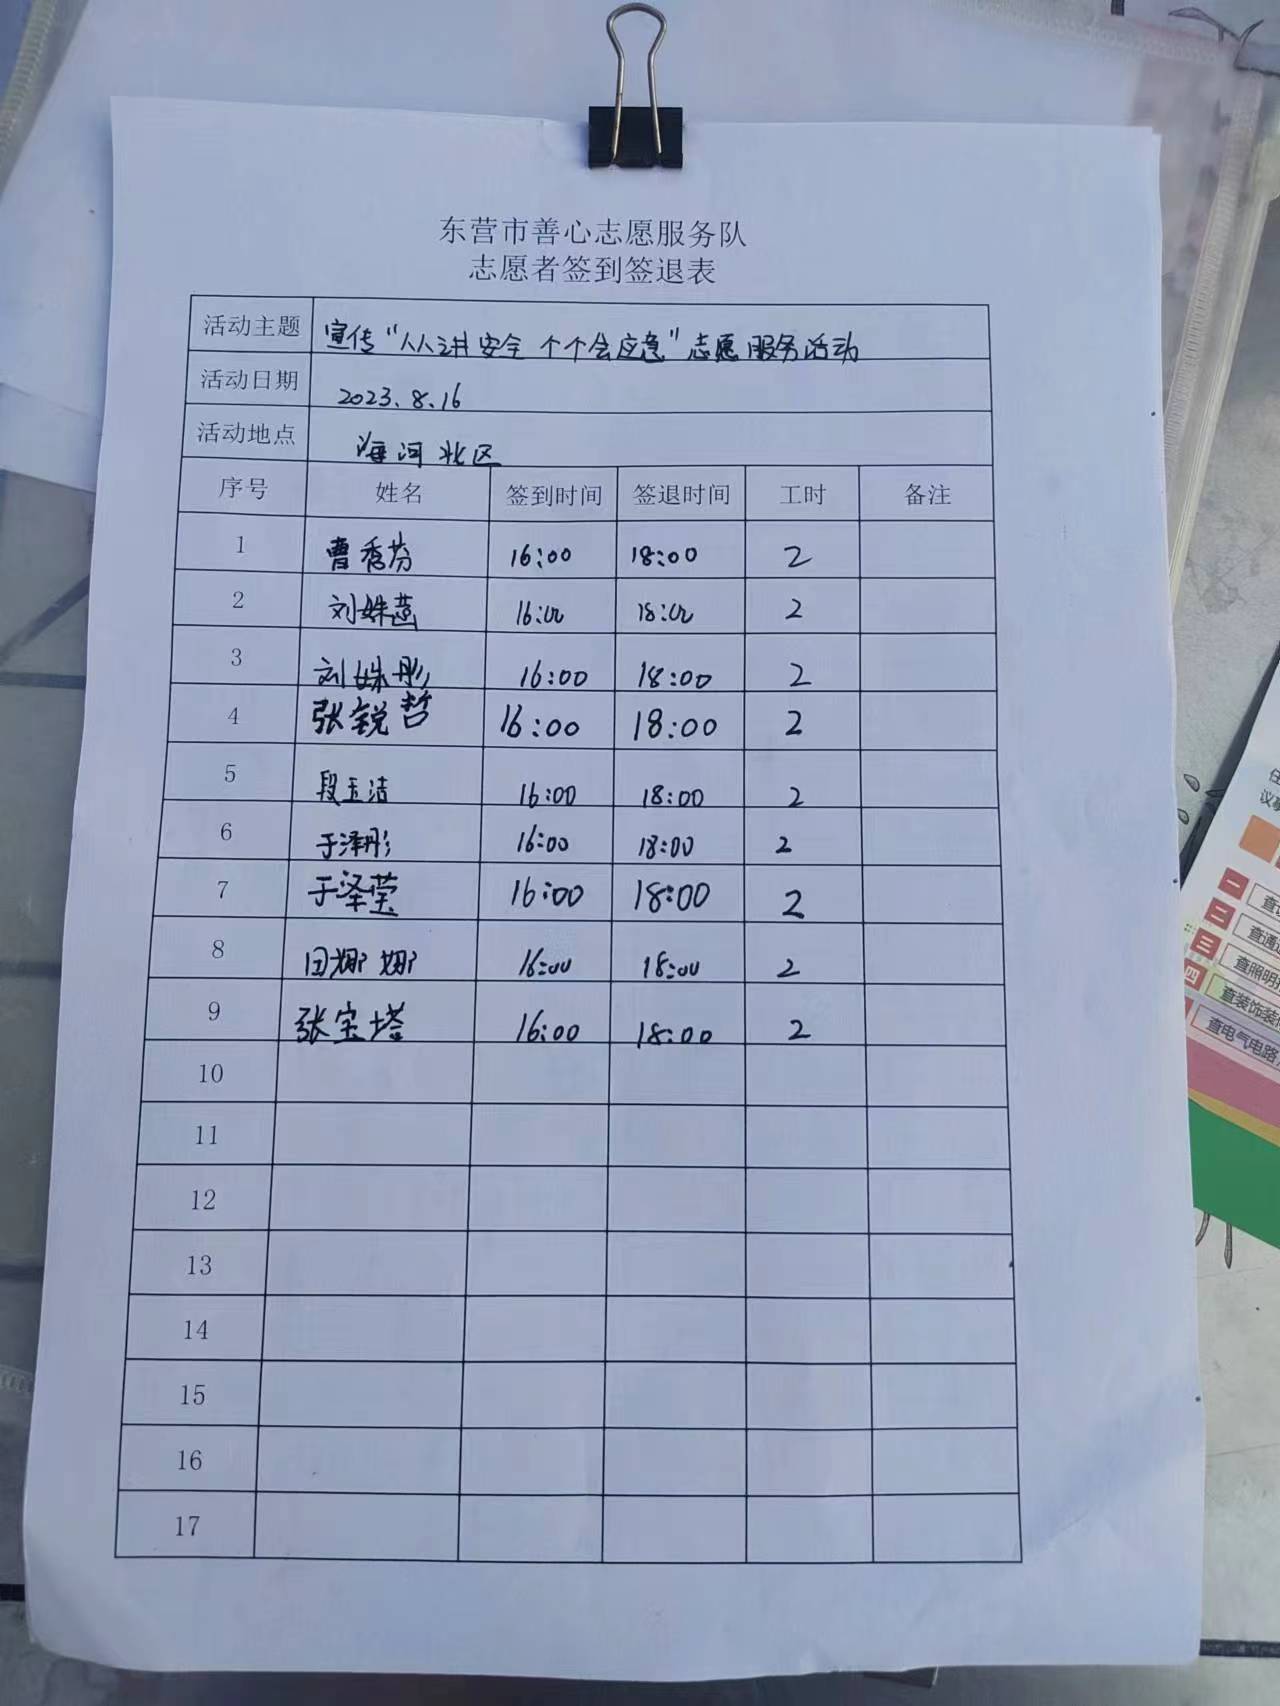 东营市善心志愿服务队
志愿者签到签退表
活动主题 宣传“人人讲安全 个个会应急”志愿服务活动
活动日期 2023.8.16
活动地点 海河北区
序号 姓名 签到时间 签退时间 工时 备注
1 曹秀芬 16:00 18:00 2
2 刘姝菡 16:00 18:00 2
3 刘姝彤 16:00 18:00 2
4 张锐哲 16:00 18:00 2
5 段玉洁 16:00 18:00 2
6 于泽彤 16:00 18:00 2
7 于泽莹 16:00 18:00 2
8 田娜娜 16:00 18:00 2
9 张宝塔 16:00 18:00 2
10
11
12
13
14
15
16
17
一
二 查通
三 查照明
四 查装饰装
查电气电路